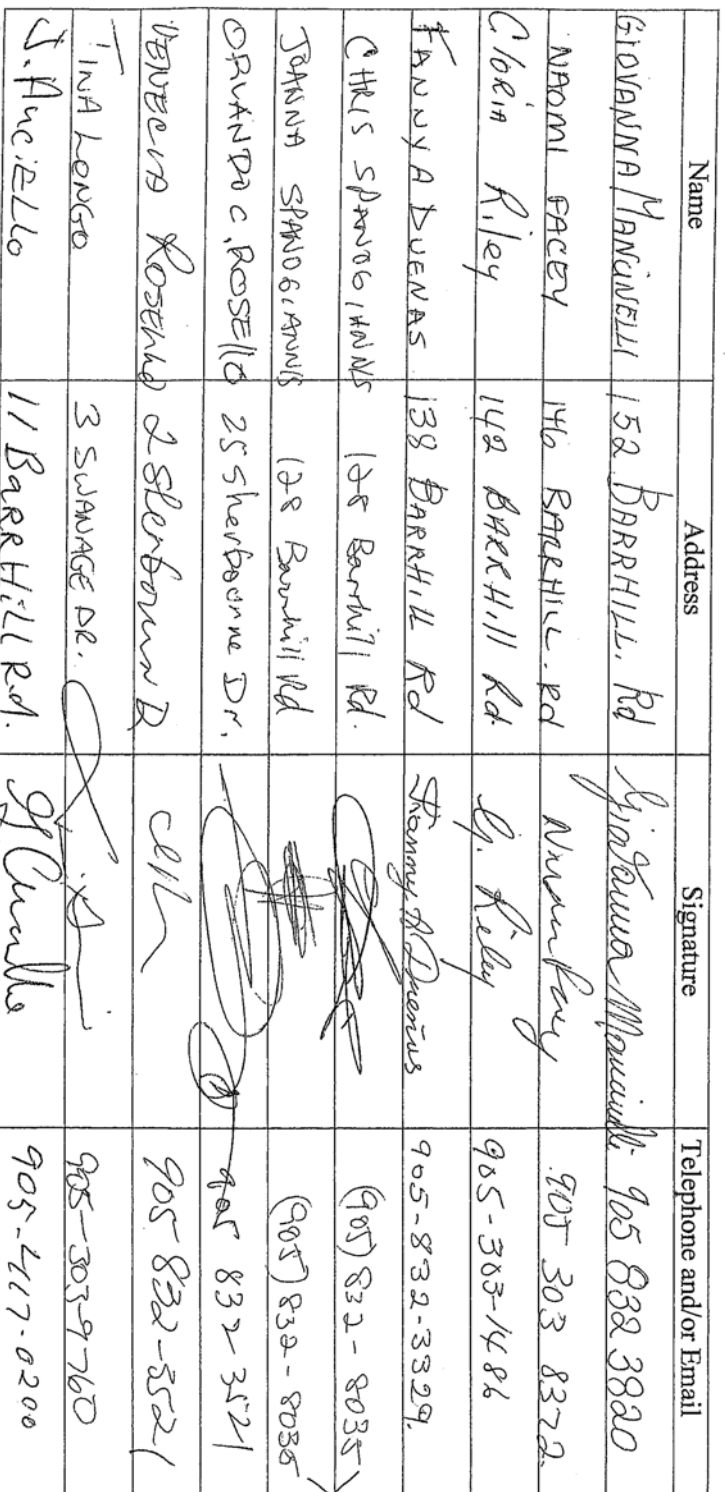 Name Address Signature Telephone and/or Email
GIOVANNA MANCINELLI 152 BARRHILL. Rd Giovanna Mancinelli 905 832 3820
NAOMI FACEY 146 BARRHILL. Rd 905 303 8372
Gloria Riley 142 BARRHill Rd. G. Riley 905-303-1486
FANNY A DUENAS 138 BARRHILL Rd Fanny A Duenas 905-832-3329.
CHRIS SPANOGIANNIS 128 Barrhill Rd. (905) 832-8035
JOANNA SPANOGIANNIS 128 Barrhill Rd (905) 832-8035
ORLANDO C. ROSELLO 25 Sherbourne Dr. 905 832-3521
VENECIA ROSELLO 2 Sherbourn D 905 832-3521
TINA LONGO 3 SWANAGE DR. 905-303-9760
J. AuciELLo 11 BARRHILL Rd. 905-417-0200